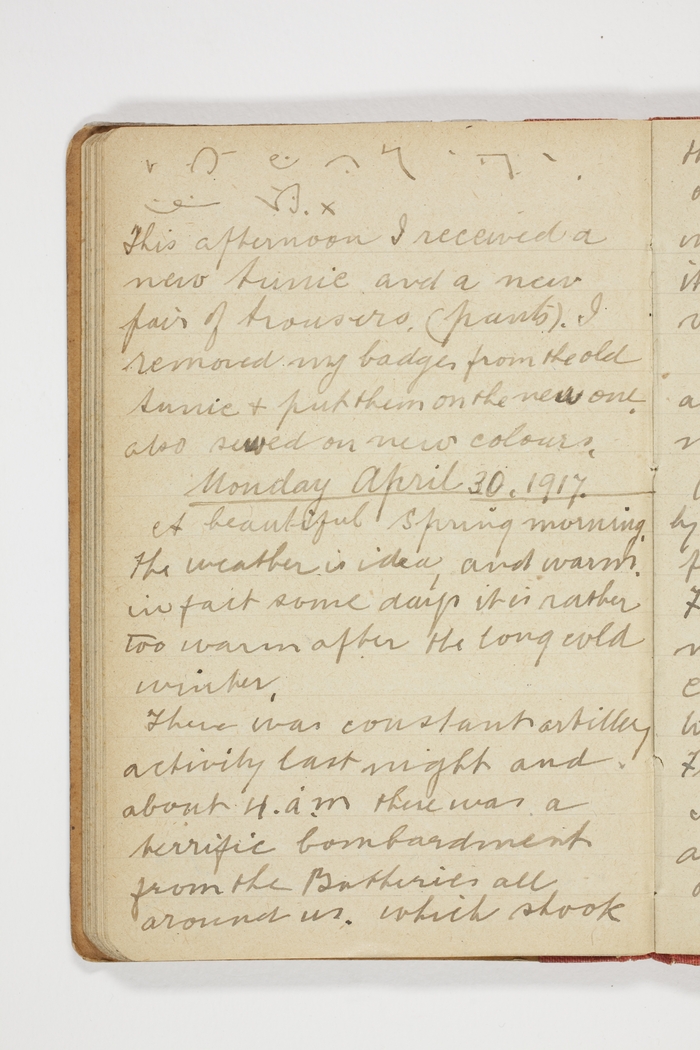 This afternoon I received a
new tunic and a new
pair of trousers. (pants). I
removed my badges from the old
tunic + put them on the new one.
also sewed on new colours.
Monday April 30. 1917.
A beautiful Spring morning.
the weather is idea, and warm.
in fact some days it is rather
too warm after the long cold
winter.
There was constant artillery
activity last night and
about 4. a.m there was a
terrific bombardment
from the Batteries all
around us. which shook